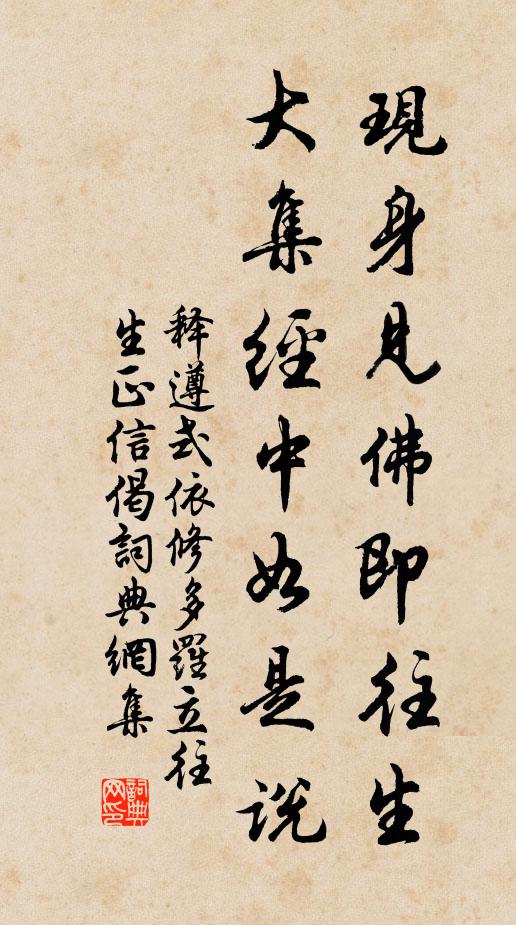 現身見佛即往生
大集經中如是說
释遵式依修多羅立往
生正信偈詞典網集
詞典
网印